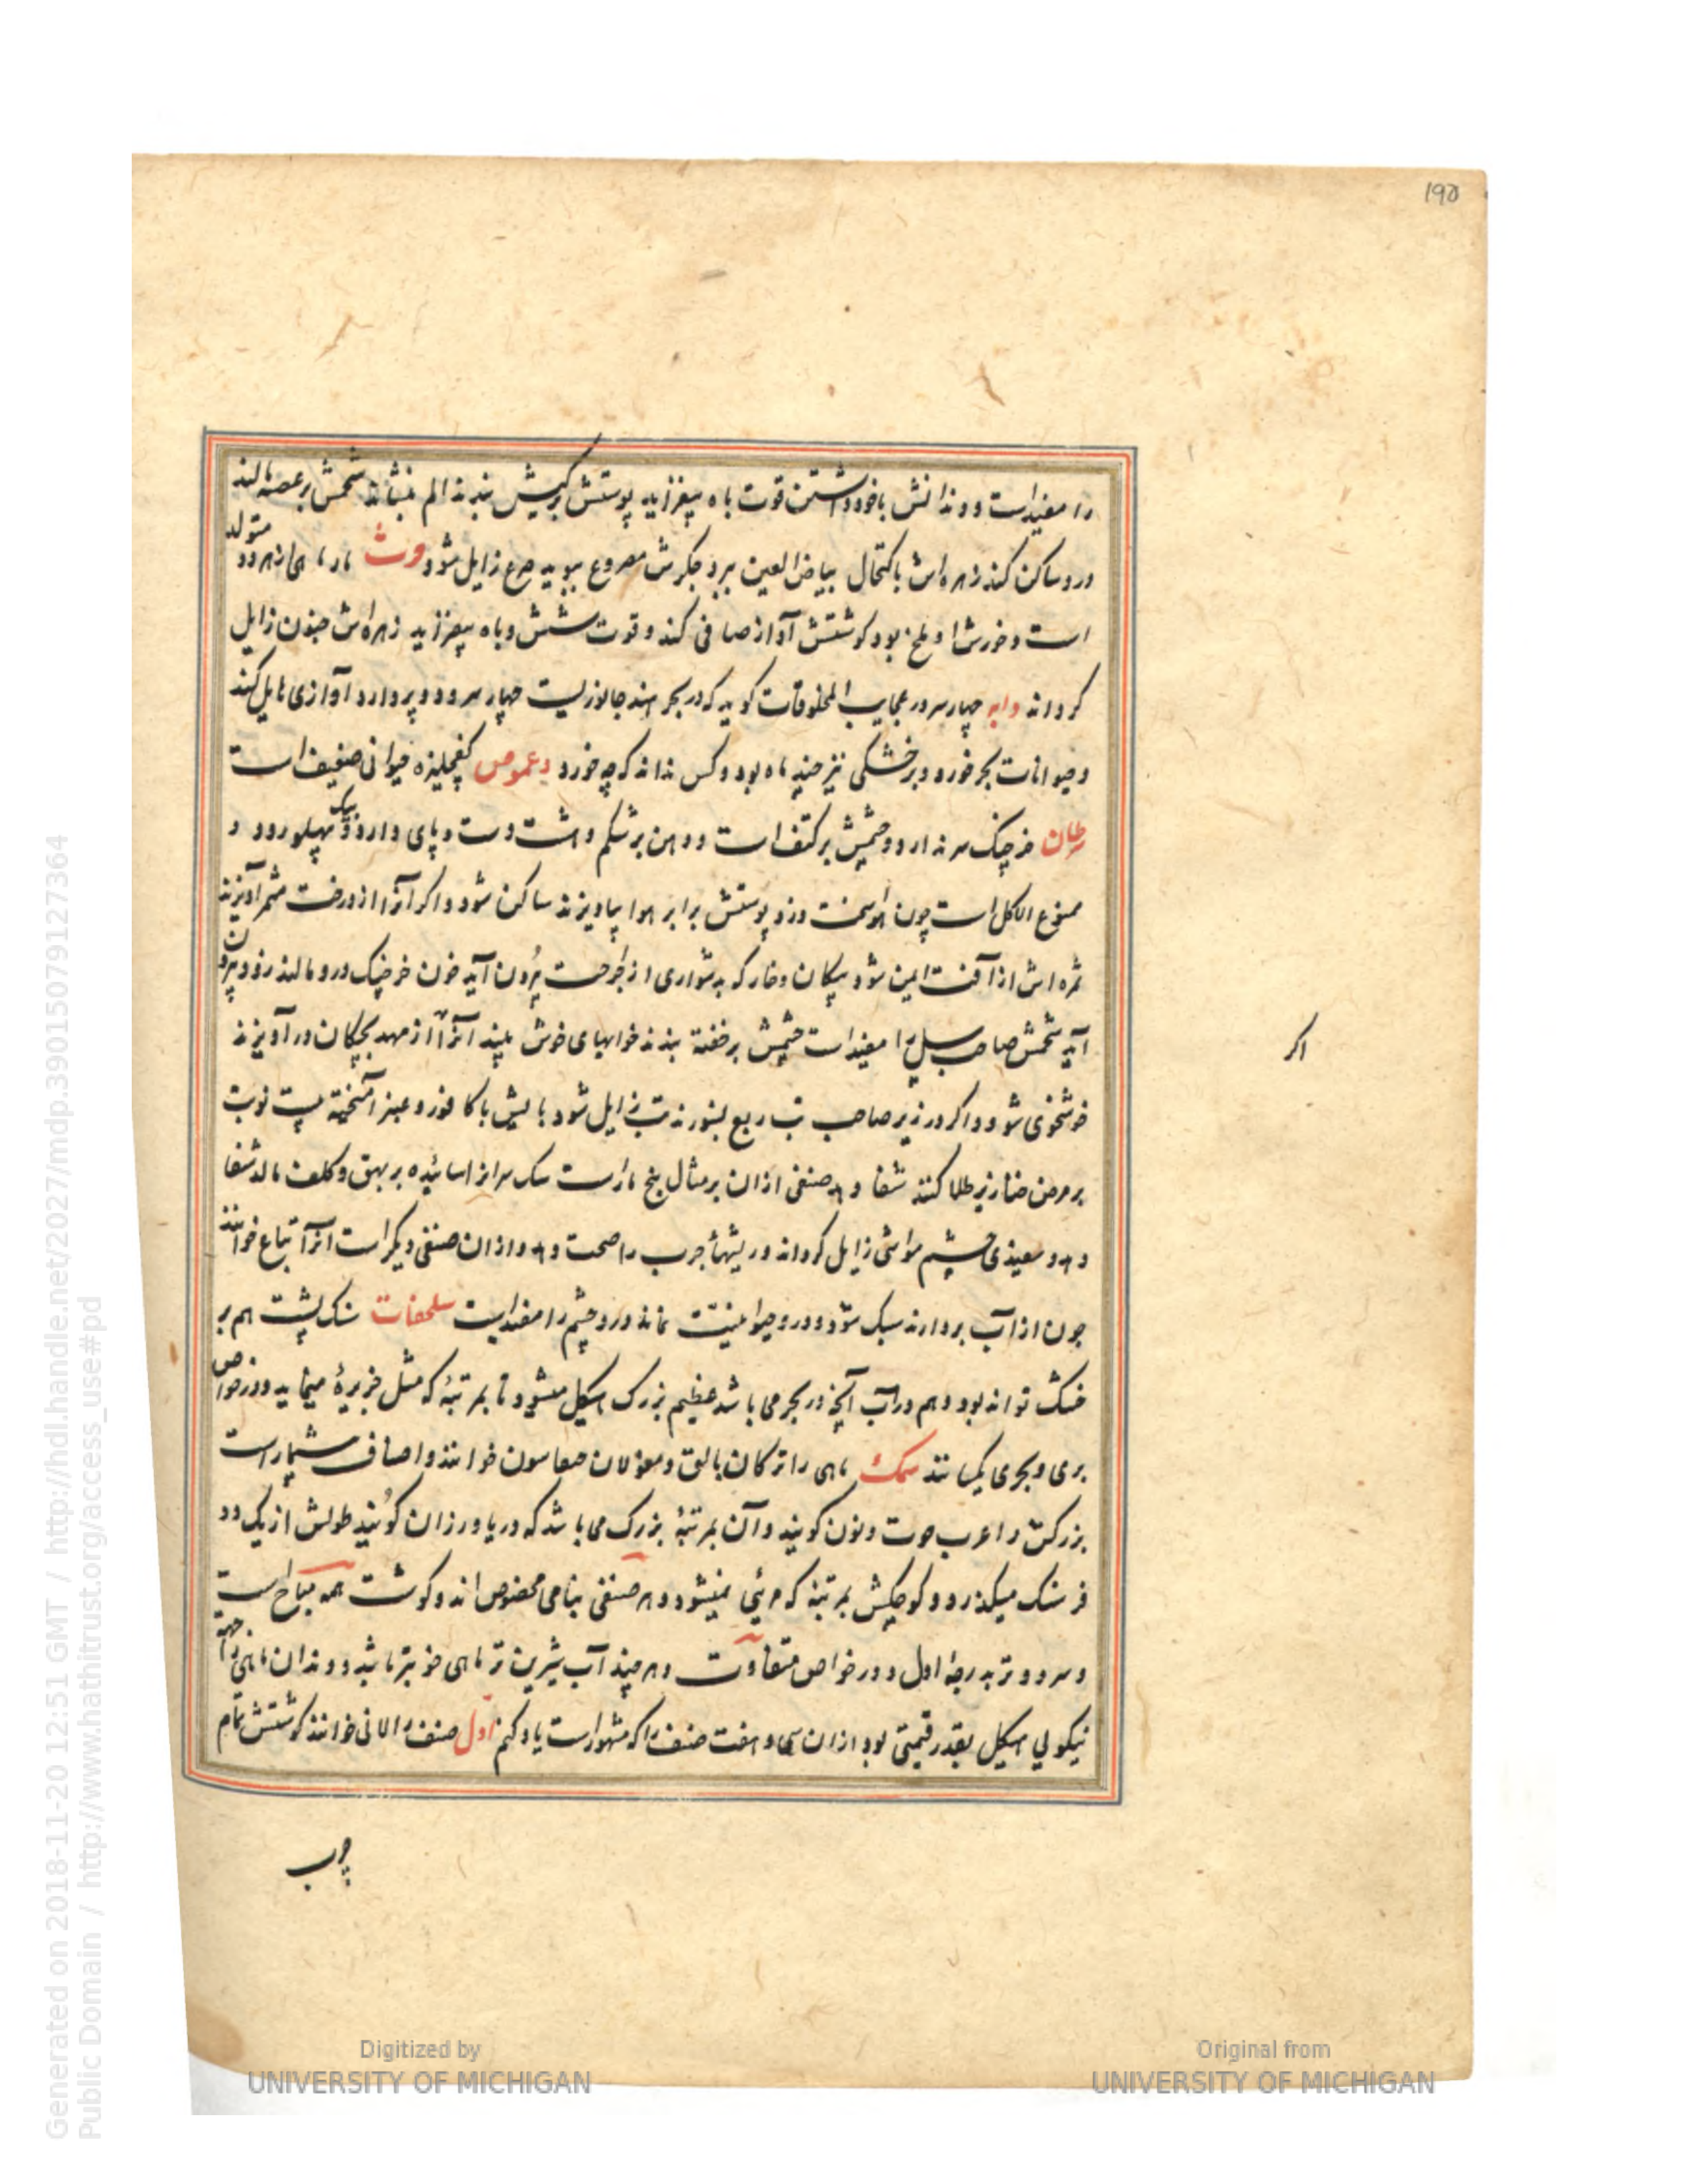 ۱۹۵
را مفیداست و دندانش باخود داشتن قوت باه بیفزاید پوستش بر کیش بندند الم بنشاند شحمش بر عصبه مالند
درد ساکن کند زهره اش باکتحال بیاض العین ببرد جکرش مصروع ببوید صرع زایل شود مار ماهی از هر دو متولد
است و خورش او بلخ بود کوشتش آواز صافی کند و قوت شش و باه بیفزاید زهره اش جنون زایل
کرداند دابه چهارسر در عجایب المخلوقات کوید که در بحر هند جانوریست چهار سر و دو پر دارد آوازی هایل کند
و حیوانات بحر خورد و بر خشکی نیز چند ماه بود و کس نداند که چه خورد دعموص کفچلیزه حیوانی ضعیف است
سرطان خرچنک سر ندارد و چشمش بر کتف است و دهن بر شکم و هشت دست و پای دارد و بیک پهلو رود و
ممنوع الاکل است چون هوا سخت وزد پوستش برابر هوا بیاویزند ساکن شود و اکر آنرا از درخت مثمر آویزند
ثمره اش از آفت ایمن شود پیکان و خار که بدشواری از جراحت بیرون آید خون خرچنک درو مالند زود بیرون
آید شحمش صاحب سل را مفیداست چشمش بر خفته بندند خوابهای خوش بیند آنرا از مهد بچکان در آویزند
خوشخوی شوند و اکر در زیر صاحب تب ربع بسوزند تب زایل شود با کافور و عنبر آمیخته
بر مرض خنازیر طلا کنند شفا دهد صنفی ازان بر مثال بنج ماراست سک سر انرا سائیده بر بهق و کلف مالد شفا
دهد و سفیدی چشم مواشی زایل کرداند و ریشهاء جرب را صحت دهد و ازان صنفی دیکر است آنرا خوانند
چون از آب بردارند سبک شود و درو حیوانیت نماند درد چشم را مفیدست سلحفات سنک پشت هم بر
خشک تواند بود و هم در آب آنچ در بحر می باشد عظیم بزرک هیکل میشود تا بمرتبهٔ که مثل جزیرهٔ مینماید و در خواص
بری و بحری یکسانند سمک ماهی را ترکان بالق و مغولان خوانند و اصناف بسیار است
بزرکش را عرب حوت و نون کویند و آن بمرتبهٔ بزرک می باشد که در دریا ورزان کویند طولش از یک دو
فرسنک میکذرد و کوچکش بمرتبهٔ که مرئی نمیشود و هر صنفی بنامی مخصوص اند و کوشت همه مباح است
و سرد و تر بدرجهٔ اول و در خواص متفاوت و هر چند آب شیرین تر ماهی خوبتر باشد و دندان ماهی را جهة
نیکویی هیکل بقدر قیمتی بود ازان سی و هفت صنف را که مشهور است یاد کنم اول صنف را خوانند کوشتش تمام
اکر
چرب
Generated on 2018-11-20 12:51 GMT / http://hdl.handle.net/2027/mdp.39015079127364
Public Domain / http://www.hathitrust.org/access_use#pd
Digitized by
UNIVERSITY OF MICHIGAN
Original from
UNIVERSITY OF MICHIGAN